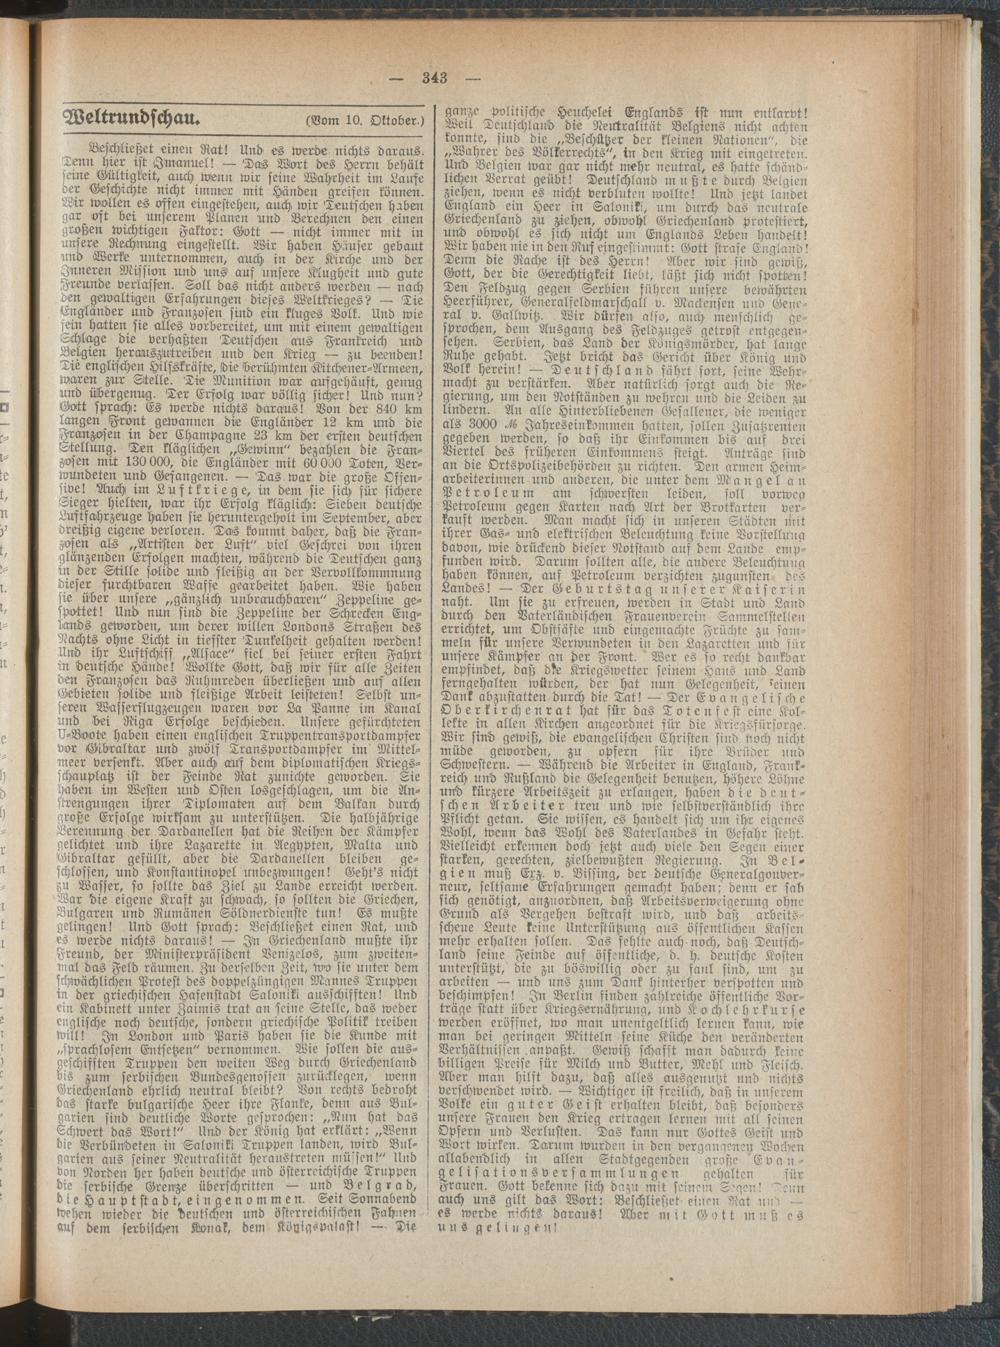 — 343 —
Weltrundschau. (Vom 10. Oktober.)
Beschließet einen Rat! Und es werde nichts daraus.
Denn hier ist Imanuel! — Das Wort des Herrn behält
seine Gültigkeit, auch wenn wir seine Wahrheit im Laufe
der Geschichte nicht immer mit Händen greifen können.
Wir wollen es offen eingestehen, auch wir Deutschen haben
gar oft bei unserem Planen und Berechnen den einen
großen wichtigen Faktor: Gott — nicht immer mit in
unsere Rechnung eingestellt. Wir haben Häuser gebaut
und Werke unternommen, auch in der Kirche und der
Inneren Mission und uns auf unsere Klugheit und gute
Freunde verlassen. Soll das nicht anders werden — nach
den gewaltigen Erfahrungen dieses Weltkrieges? — Die
Engländer und Franzosen sind ein kluges Volk. Und wie
fein hatten sie alles vorbereitet, um mit einem gewaltigen
Schlage die verhaßten Deutschen aus Frankreich und
Belgien herauszutreiben und den Krieg — zu beenden!
Die englischen Hilfskräfte, die berühmten Kitchener-Armeen,
waren zur Stelle. Die Munition war aufgehäuft, genug
und übergenug. Der Erfolg war völlig sicher! Und nun?
Gott sprach: Es werde nichts daraus! Von der 840 km
langen Front gewannen die Engländer 12 km und die
Franzosen in der Champagne 23 km der ersten deutschen
Stellung. Den kläglichen „Gewinn“ bezahlen die Fran-
zosen mit 130 000, die Engländer mit 60 000 Toten, Ver-
wundeten und Gefangenen. — Das war die große Offen-
sive! Auch im Luftkriege, in dem sie sich für sichere
Sieger hielten, war ihr Erfolg kläglich: Sieben deutsche
Luftfahrzeuge haben sie heruntergeholt im September, aber
dreißig eigene verloren. Das kommt daher, daß die Fran-
zosen als „Artisten der Luft“ viel Geschrei von ihren
glänzenden Erfolgen machten, während die Deutschen ganz
in der Stille solide und fleißig an der Vervollkommnung
dieser furchtbaren Waffe gearbeitet haben. Wie haben
sie über unsere „gänzlich unbrauchbaren“ Zeppeline ge-
spottet! Und nun sind die Zeppeline der Schrecken Eng-
lands geworden, um derer willen Londons Straßen des
Nachts ohne Licht in tiefster Dunkelheit gehalten werden!
Und ihr Luftschiff „Alsace“ fiel bei seiner ersten Fahrt
in deutsche Hände! Wollte Gott, daß wir für alle Zeiten
den Franzosen das Ruhmreden überließen und auf allen
Gebieten solide und fleißige Arbeit leisteten! Selbst un-
seren Wasserflugzeugen waren vor La Panne im Kanal
und bei Riga Erfolge beschieden. Unsere gefürchteten
U-Boote haben einen englischen Truppentransportdampfer
vor Gibraltar und zwölf Transportdampfer im Mittel-
meer versenkt. Aber auch auf dem diplomatischen Kriegs-
schauplatz ist der Feinde Rat zunichte geworden. Sie
haben im Westen und Osten losgeschlagen, um die An-
strengungen ihrer Diplomaten auf dem Balkan durch
große Erfolge wirksam zu unterstützen. Die halbjährige
Berennung der Dardanellen hat die Reihen der Kämpfer
gelichtet und ihre Lazarette in Aegypten, Malta und
Gibraltar gefüllt, aber die Dardanellen bleiben ge-
schlossen, und Konstantinopel unbezwungen! Geht's nicht
zu Wasser, so sollte das Ziel zu Lande erreicht werden.
War die eigene Kraft zu schwach, so sollten die Griechen,
Bulgaren und Rumänen Söldnerdienste tun! Es mußte
gelingen! Und Gott sprach: Beschließet einen Rat, und
es werde nichts daraus! — In Griechenland mußte ihr
Freund, der Ministerpräsident Venizelos, zum zweiten-
mal das Feld räumen. Zu derselben Zeit, wo sie unter dem
schwächlichen Protest des doppelzüngigen Mannes Truppen
in der griechischen Hafenstadt Saloniki ausschifften! Und
ein Kabinett unter Zaimis trat an seine Stelle, das weder
englische noch deutsche, sondern griechische Politik treiben
will! In London und Paris haben sie die Kunde mit
„sprachlosem Entsetzen“ vernommen. Wie sollen die aus-
geschifften Truppen den weiten Weg durch Griechenland
bis zum serbischen Bundesgenossen zurücklegen, wenn
Griechenland ehrlich neutral bleibt? Von rechts bedroht
das starke bulgarische Heer ihre Flanke, denn aus Bul-
garien sind deutliche Worte gesprochen: „Nun hat das
Schwert das Wort!“ Und der König hat erklärt: „Wenn
die Verbündeten in Saloniki Truppen landen, wird Bul-
garien aus seiner Neutralität heraustreten müssen!“ Und
von Norden her haben deutsche und österreichische Truppen
die serbische Grenze überschritten — und Belgrad,
die Hauptstadt, eingenommen. Seit Sonnabend
wehen wieder die deutschen und österreichischen Fahnen
auf dem serbischen Konak, dem Königspalast! — Die
ganze politische Heuchelei Englands ist nun entlarvt!
Weil Deutschland die Neutralität Belgiens nicht achten
konnte, sind die „Beschützer der kleinen Nationen“, die
„Wahrer des Völkerrechts“, in den Krieg mit eingetreten.
Und Belgien war gar nicht mehr neutral, es hatte schänd-
lichen Verrat geübt! Deutschland mußte durch Belgien
ziehen, wenn es nicht verbluten wollte! Und jetzt landet
England ein Heer in Saloniki, um durch das neutrale
Griechenland zu ziehen, obwohl Griechenland protestiert,
und obwohl es sich nicht um Englands Leben handelt!
Wir haben nie in den Ruf eingestimmt: Gott strafe England!
Denn die Rache ist des Herrn! Aber wir sind gewiß,
Gott, der die Gerechtigkeit liebt, läßt sich nicht spotten!
Den Feldzug gegen Serbien führen unsere bewährten
Heerführer, Generalfeldmarschall v. Mackensen und Gene-
ral v. Gallwitz. Wir dürfen also, auch menschlich ge-
sprochen, dem Ausgang des Feldzuges getrost entgegen-
sehen. Serbien, das Land der Königsmörder, hat lange
Ruhe gehabt. Jetzt bricht das Gericht über König und
Volk herein! — Deutschland fährt fort, seine Wehr-
macht zu verstärken. Aber natürlich sorgt auch die Re-
gierung, um den Notständen zu wehren und die Leiden zu
lindern. An alle Hinterbliebenen Gefallener, die weniger
als 3000 ℳ Jahreseinkommen hatten, sollen Zusatzrenten
gegeben werden, so daß ihr Einkommen bis auf drei
Viertel des früheren Einkommens steigt. Anträge sind
an die Ortspolizeibehörden zu richten. Den armen Heim-
arbeiterinnen und anderen, die unter dem Mangel an
Petroleum am schwersten leiden, soll vorweg
Petroleum gegen Karten nach Art der Brotkarten ver-
kauft werden. Man macht sich in unseren Städten mit
ihrer Gas- und elektrischen Beleuchtung keine Vorstellung
davon, wie drückend dieser Notstand auf dem Lande emp-
funden wird. Darum sollten alle, die andere Beleuchtung
haben können, auf Petroleum verzichten zugunsten des
Landes! — Der Geburtstag unserer Kaiserin
naht. Um sie zu erfreuen, werden in Stadt und Land
durch den Vaterländischen Frauenverein Sammelstellen
errichtet, um Obstsäfte und eingemachte Früchte zu sam-
meln für unsere Verwundeten in den Lazaretten und für
unsere Kämpfer an der Front. Wer es so recht dankbar
empfindet, daß die Kriegswetter seinem Haus und Land
ferngehalten würden, der hat nun Gelegenheit, seinen
Dank abzustatten durch die Tat! — Der Evangelische
Oberkirchenrat hat für das Totenfest eine Kol-
lekte in allen Kirchen angeordnet für die Kriegsfürsorge.
Wir sind gewiß, die evangelischen Christen sind noch nicht
müde geworden, zu opfern für ihre Brüder und
Schwestern. — Während die Arbeiter in England, Frank-
reich und Rußland die Gelegenheit benutzen, höhere Löhne
und kürzere Arbeitszeit zu erlangen, haben die deut-
schen Arbeiter treu und wie selbstverständlich ihre
Pflicht getan. Sie wissen, es handelt sich um ihr eigenes
Wohl, wenn das Wohl des Vaterlandes in Gefahr steht.
Vielleicht erkennen doch jetzt auch viele den Segen einer
starken, gerechten, zielbewußten Regierung. In Bel-
gien muß Exz. v. Bissing, der deutsche Generalgouver-
neur, seltsame Erfahrungen gemacht haben; denn er sah
sich genötigt, anzuordnen, daß Arbeitsverweigerung ohne
Grund als Vergehen bestraft wird, und daß arbeits-
scheue Leute keine Unterstützung aus öffentlichen Kassen
mehr erhalten sollen. Das fehlte auch noch, daß Deutsch-
land seine Feinde auf öffentliche, d. h. deutsche Kosten
unterstützt, die zu böswillig oder zu faul sind, um zu
arbeiten — und uns zum Dank hinterher verspotten und
beschimpfen! In Berlin finden zahlreiche öffentliche Vor-
träge statt über Kriegsernährung, und Kochlehrkurse
werden eröffnet, wo man unentgeltlich lernen kann, wie
man bei geringen Mitteln seine Küche den veränderten
Verhältnissen anpaßt. Gewiß schafft man dadurch keine
billigen Preise für Milch und Butter, Mehl und Fleisch.
Aber man hilft dazu, daß alles ausgenutzt und nichts
verschwendet wird. — Wichtiger ist freilich, daß in unserem
Volke ein guter Geist erhalten bleibt, daß besonders
unsere Frauen den Krieg ertragen lernen mit all seinen
Opfern und Verlusten. Das kann nur Gottes Geist und
Wort wirken. Darum wurden in den vergangenen Wochen
allabendlich in allen Stadtgegenden große Evan-
gelisationsversammlungen gehalten für
Frauen. Gott bekenne sich dazu mit seinem Segen! Denn
auch uns gilt das Wort: Beschließet einen Rat und —
es werde nichts daraus! Aber mit Gott muß es
uns gelingen!